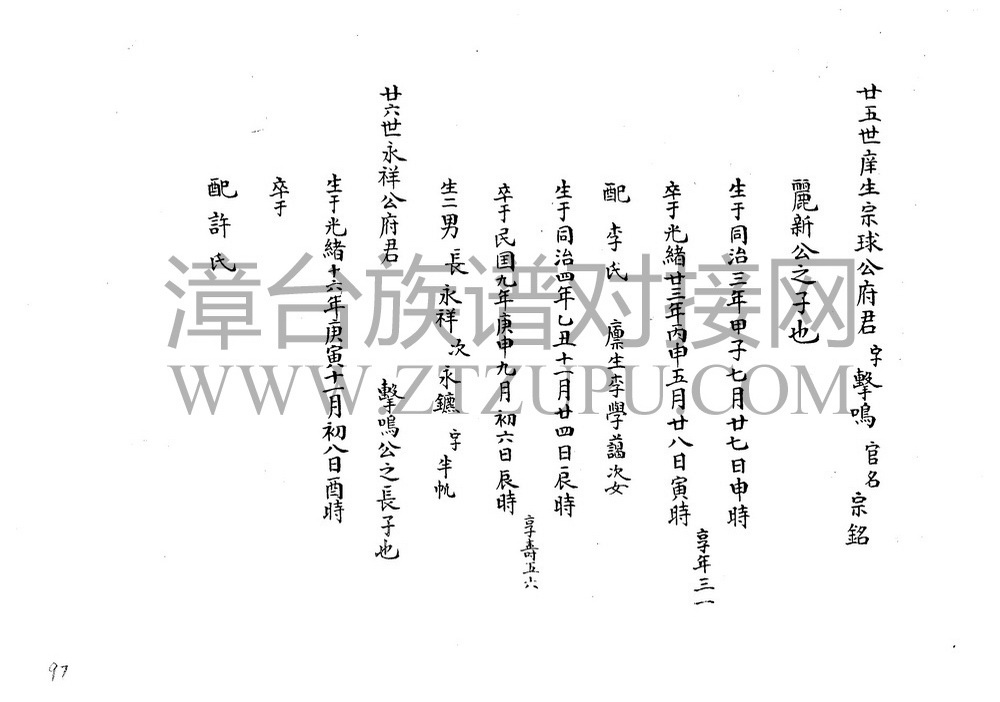 廿五世庠生宗球公府君 字擊鳴 官名宗銘
麗新公之子也
生于同治三年甲子七月廿七日申時
卒于光緒廿三年丙申五月廿八日寅時 享年三一
配李氏 廩生李學藹次女
生于同治四年乙丑十一月廿四日辰時
卒于民国九年庚申九月初六日辰時 享壽五六
生二男 長永祥 次永鑣 字半帆
廿六世永祥公府君 擊鳴公之長子也
生于光緒十六年庚寅十一月初八日酉時
卒于
配許氏
漳台族谱对接网
WWW.ZTZUPU.COM
97